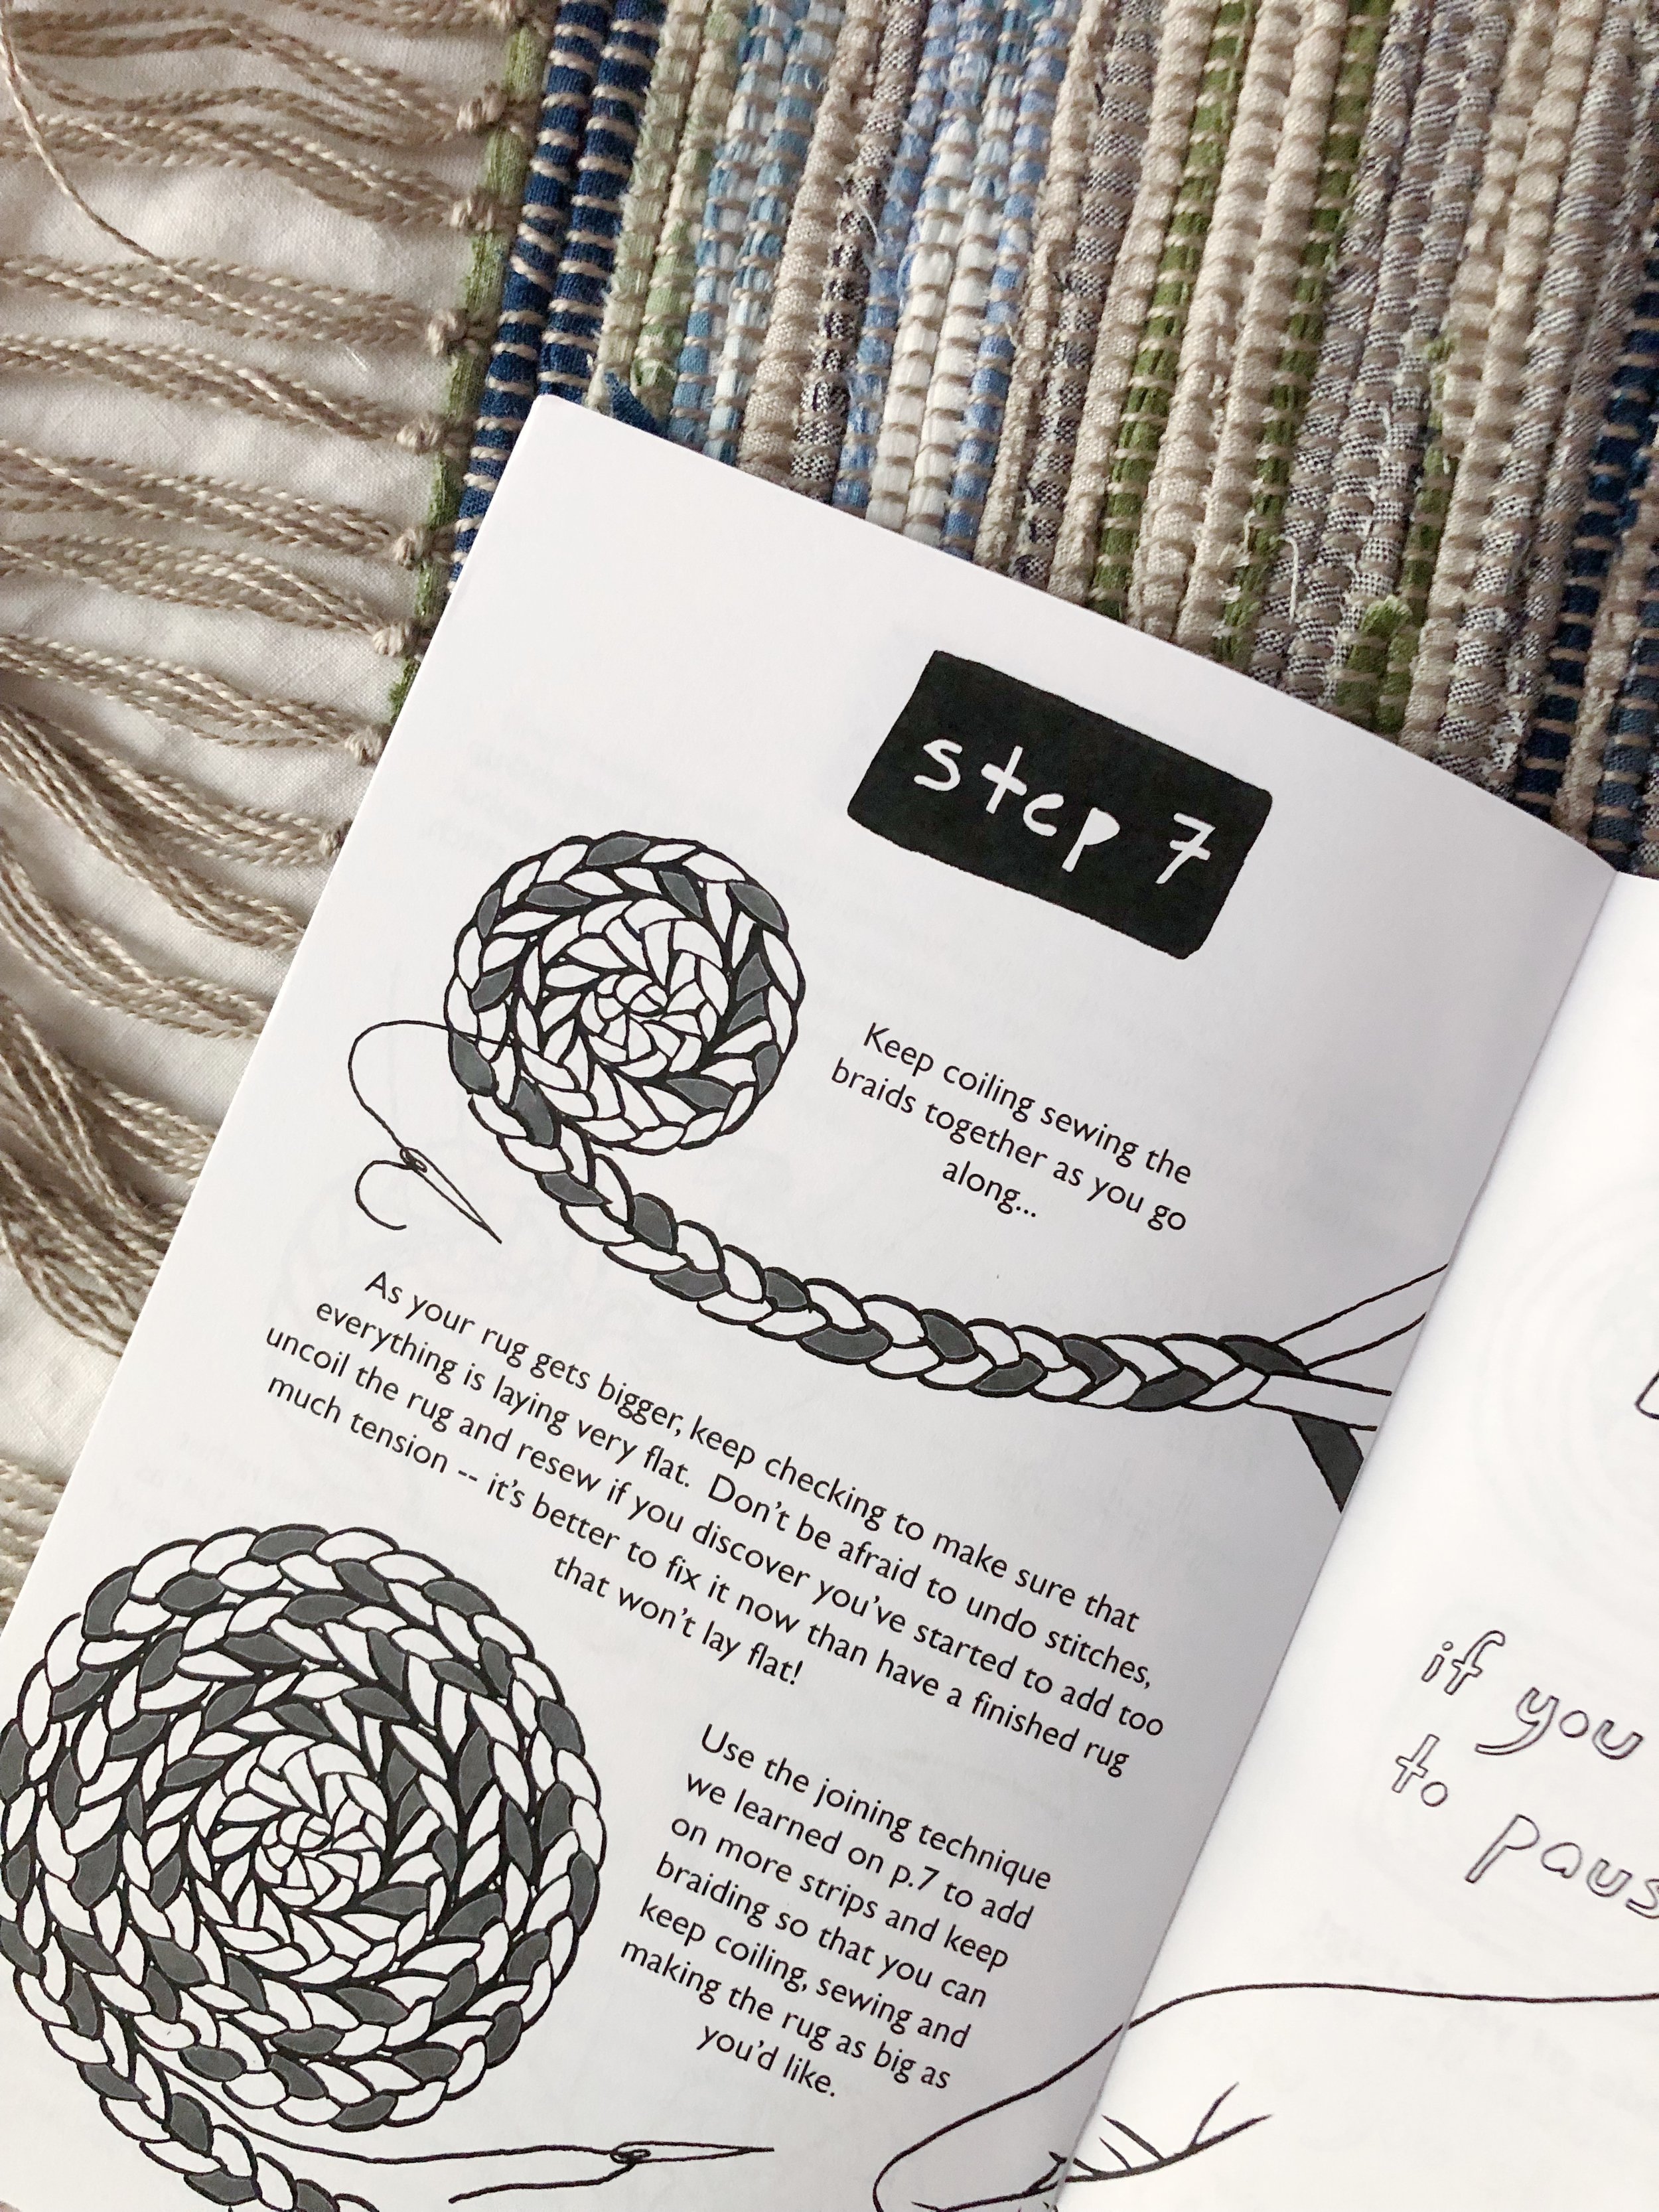 step 7
Keep coiling sewing the
braids together as you go
along...
As your rug gets bigger, keep checking to make sure that
everything is laying very flat. Don't be afraid to undo stitches,
uncoil the rug and resew if you discover you've started to add too
much tension -- it's better to fix it now than have a finished rug
that won't lay flat!
Use the joining technique
we learned on p.7 to add
on more strips and keep
braiding so that you can
keep coiling, sewing and
making the rug as big as
you'd like.
if you
to